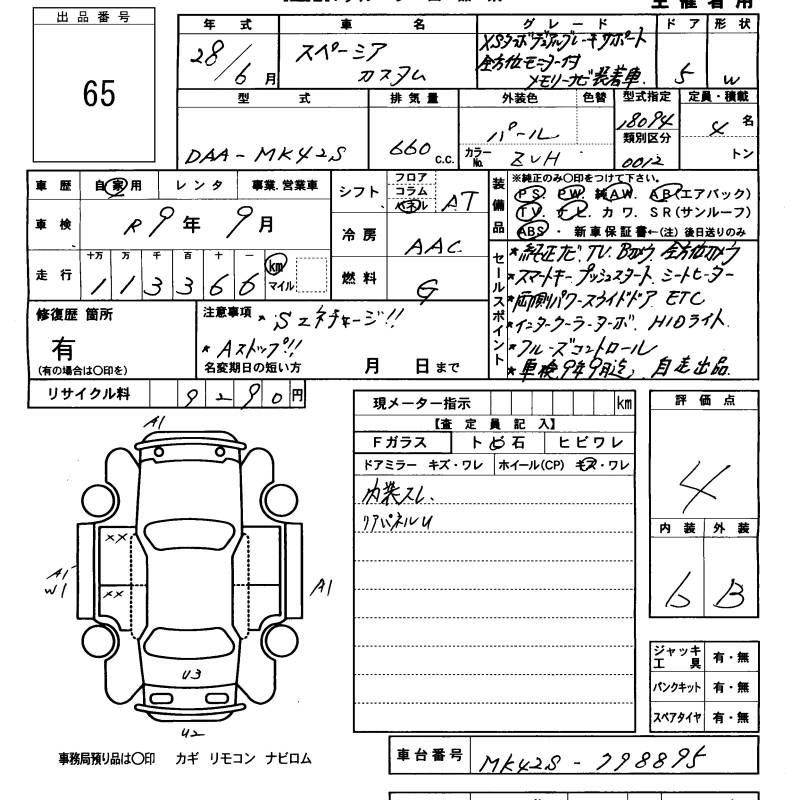 出品番号
65
主催者用
年式 車名 グレード ドア 形状
28/6月 スペーシア カスタム
XSターボデュアルブレーキサポート
全方位モニター付
メモリーナビ装着車.
5 W
型式 排気量 外装色 色替 型式指定 定員・積載
DAA-MK42S 660 C.C. パール
カラーNo. ZVH
18094
類別区分
0012
4 名
トン
車歴 自家用 レンタ 事業.営業車
車検 R9年 9月
走行 十万 万 千 百 十 一
113366 km マイル
シフト フロア コラム パネル AT
冷房 AAC
燃料 G
装備品
※純正のみ○印をつけて下さい。
PS. PW. 純AW. AB(エアバック)
TV. ナビ. カワ. SR(サンルーフ)
ABS ・ 新車保証書←(注)後日送りのみ
セールスポイント
*純正ナビ. TV. Bカメラ. 全方位カメラ
*スマートキー プッシュスタート シートヒーター
*両側パワースライドドア ETC
*インタークーラーターボ. HIDライト.
*クルーズコントロール
*車検9年9月迄. 自走出品.
修復歴 箇所
有
(有の場合は○印を)
注意事項 * Sエネチャージ!!
* Aストップ!!
名変期日の短い方 月 日まで
リサイクル料 9290円
現メーター指示 km
【査定員記入】
Fガラス トビ石 ヒビワレ
ドアミラー キズ・ワレ ホイール(CP) キズ・ワレ
内装スレ.
リアパネルU
評価点
4
内装 外装
6 B
ジャッキ工具 有・無
パンクキット 有・無
スペアタイヤ 有・無
A1
XX
A1
W1
XX
A1
U3
U2
事務局預り品は○印 カギ リモコン ナビロム
車台番号 MK42S-798895